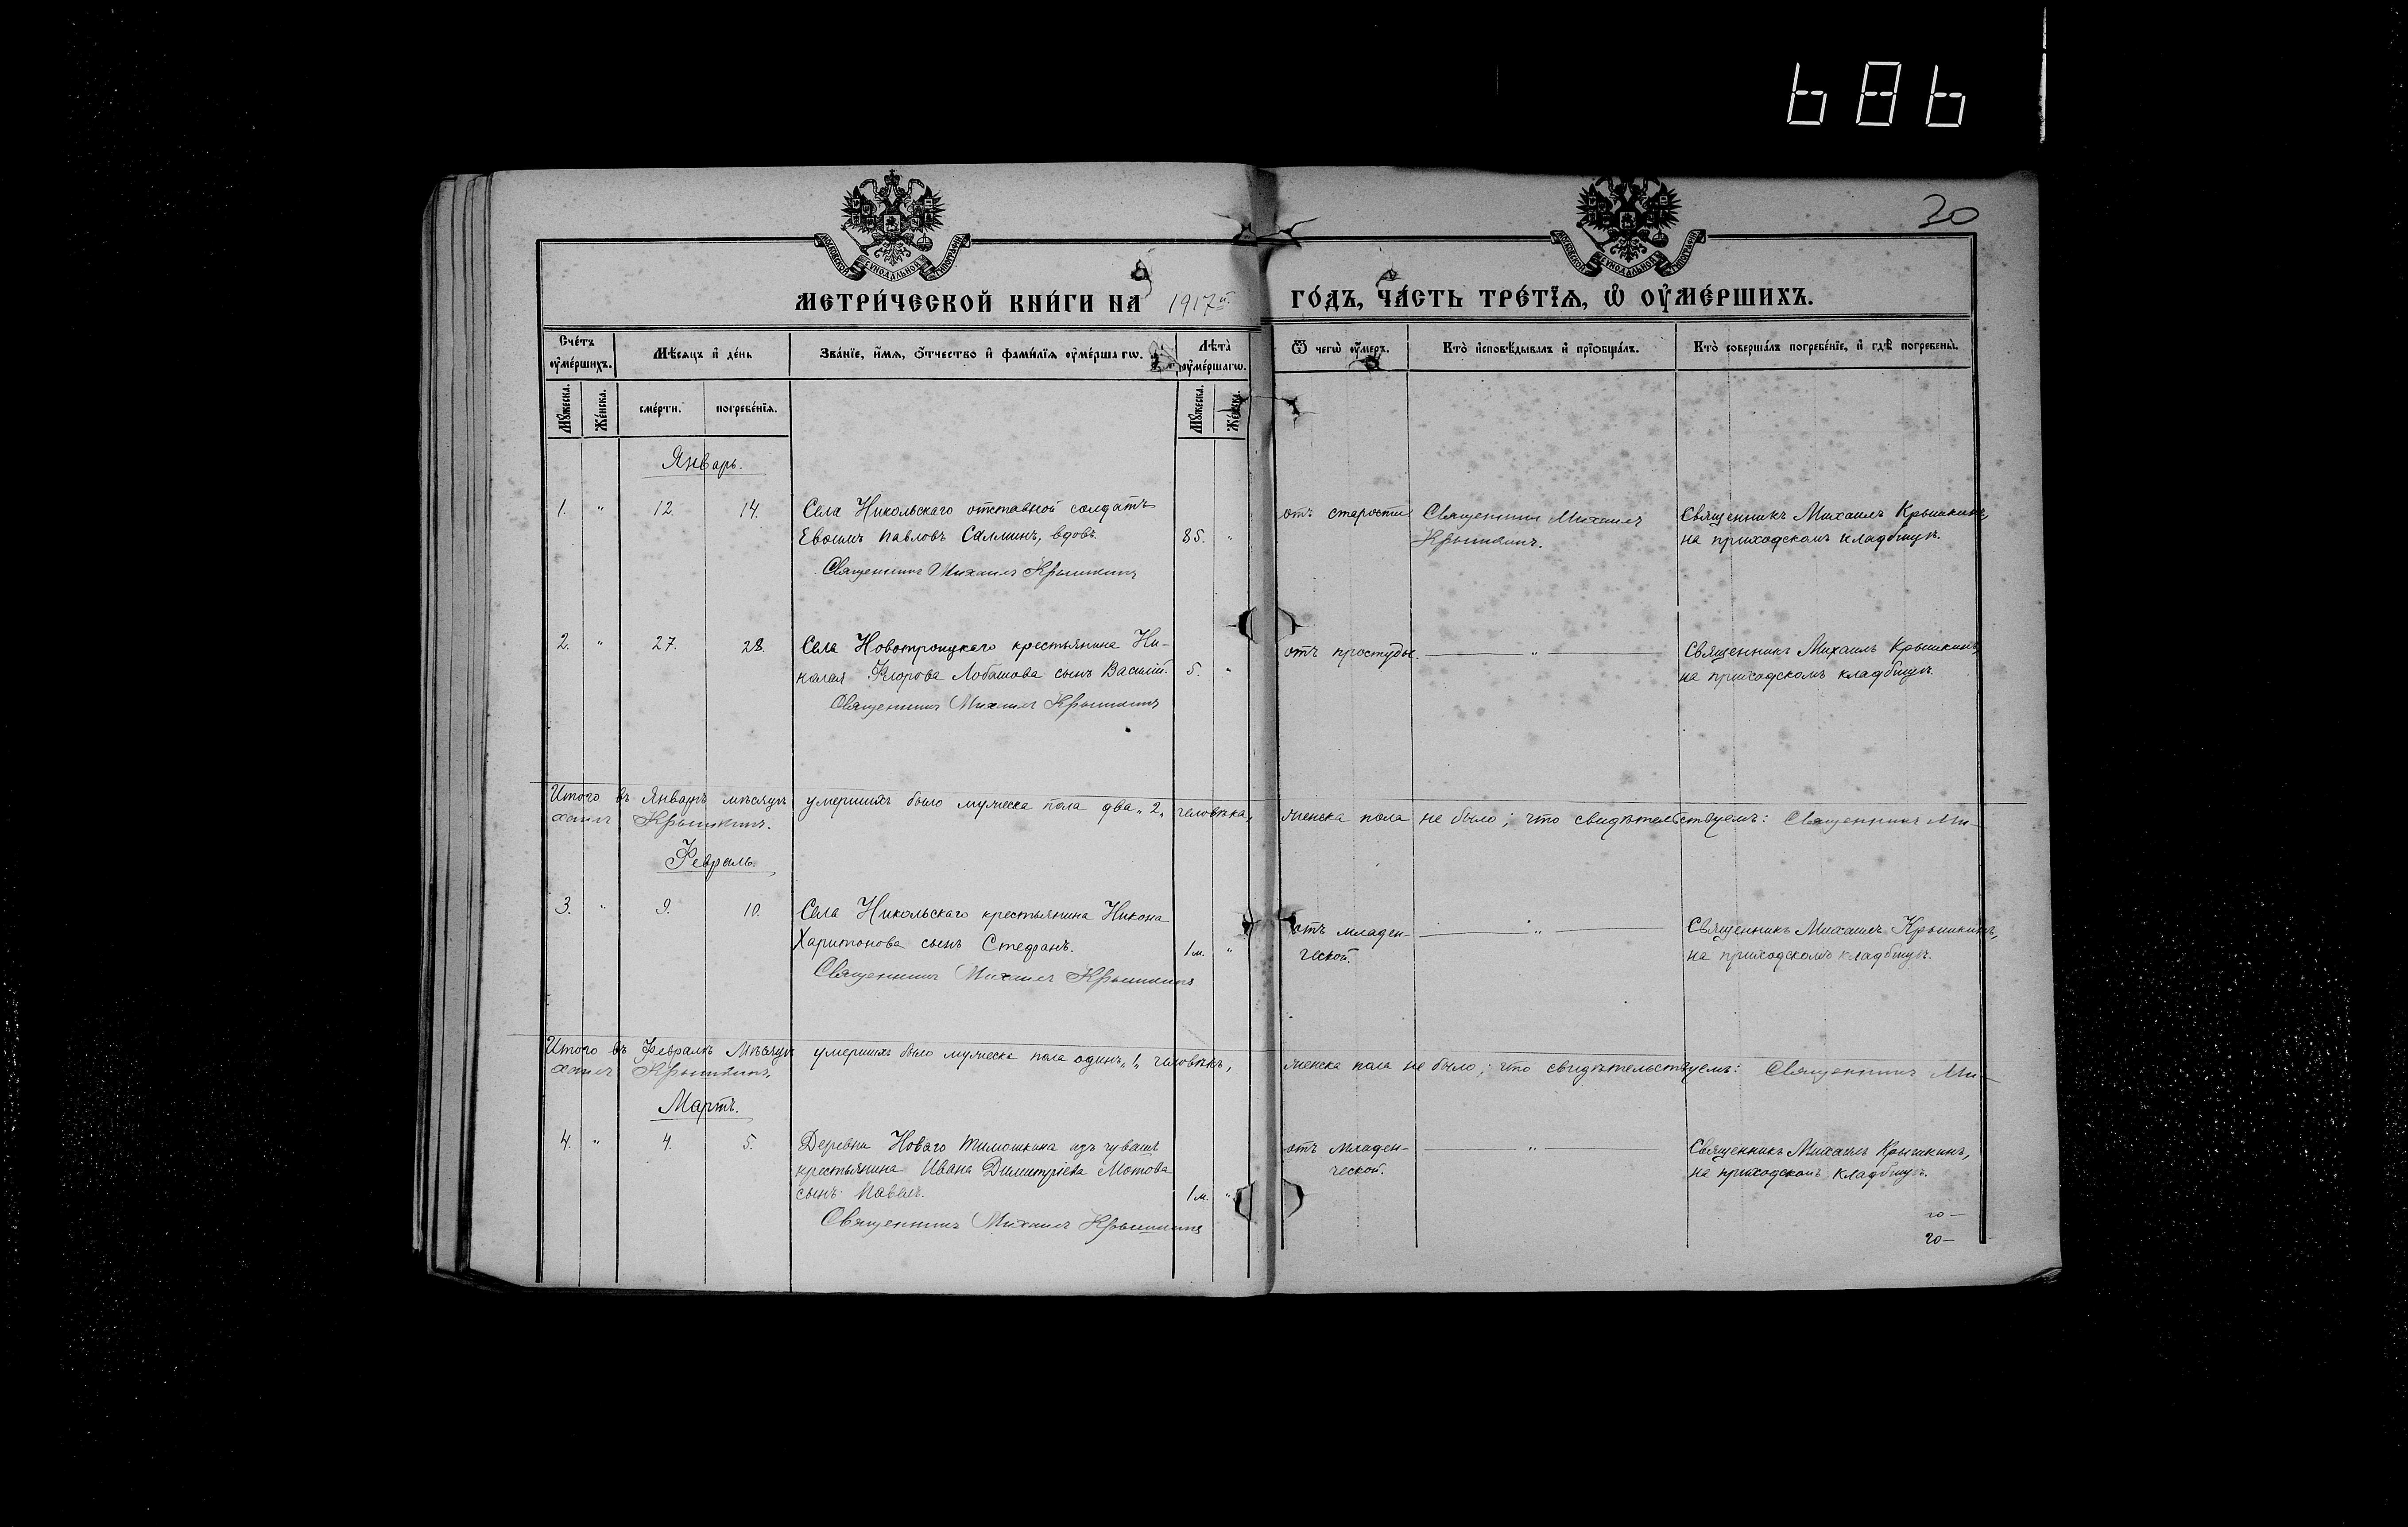 686
20
МОСКОВСКОЙ СУНОДАЛЬНОЙ ТИПОГРАФІИ
МОСКОВСКОЙ СУНОДАЛЬНОЙ ТИПОГРАФІИ
МЕТРИ́ЧЕСКОЙ КНИ́ГИ НА 1917й ГО́ДЪ, ЧА́СТЬ ТРЕ́ТЇѦ, Ѡ҆ ОУ҆МЕ́РШИХЪ.
Сче́тъ оу҆ме́ршихъ.
Мѣ́сѧцъ и҆ де́нь
Зва́нїе, и҆́мѧ, ѻ҆́тчество и҆ фами́лїѧ оу҆ме́ршагѡ.
Лѣ́та оу҆ме́ршагѡ.
Ѿ чегѡ̀ оу҆́меръ.
Кто̀ и҆сповѣ́дывалъ и҆ прїѻбща́лъ.
Кто̀ соверша́лъ погребе́нїе, и҆ гдѣ̀ погребены̀.
Мꙋ́жеска.
Же́нска.
сме́рти.
погребе́нїѧ.
Мꙋ́жеска.
Же́нска.
Январь.
1. " 12. 14. Села Никольскаго отставной солдатъ
Евѳимъ Павловъ Саллинъ, вдовъ. 85. "
Священникъ Михаилъ Крышкинъ
отъ старости
Священникъ Михаилъ
Крышкинъ.
Священникъ Михаилъ Крышкинъ,
на приходскомъ кладбищѣ.
2. " 27. 28. Села Новотроицкаго крестьянина Ни-
колая Флорова Лобашова сынъ Василій. 5. "
Священникъ Михаилъ Крышкинъ
отъ простуды. — " —
Священникъ Михаилъ Крышкинъ,
на приходскомъ кладбищѣ.
Итого въ Январѣ мѣсяцѣ умершихъ было мужеска пола два „2„ человѣка, женска пола не было; что свидѣтельствуемъ: Священникъ Ми-
хаилъ Крышкинъ.
Февраль.
3. " 9. 10. Села Никольскаго крестьянина Никона
Харитонова сынъ Стефанъ. 1 м. "
Священникъ Михаилъ Крышкинъ
отъ младен-
ческой. — " —
Священникъ Михаилъ Крышкинъ,
на приходскомъ кладбищѣ.
Итого въ Февралѣ мѣсяцѣ умершихъ было мужеска пола одинъ „1„ человѣкъ, женска пола не было; что свидѣтельствуемъ: Священникъ Ми-
хаилъ Крышкинъ.
Мартъ.
4. " 4. 5. Деревни Новаго Тимошкина изъ чувашъ
крестьянина Ивана Димитріева Мотова
сынъ Павелъ. 1 м. "
Священникъ Михаилъ Крышкинъ
отъ младен-
ческой. — " —
Священникъ Михаилъ Крышкинъ,
на приходскомъ кладбищѣ.
20 —
20 —